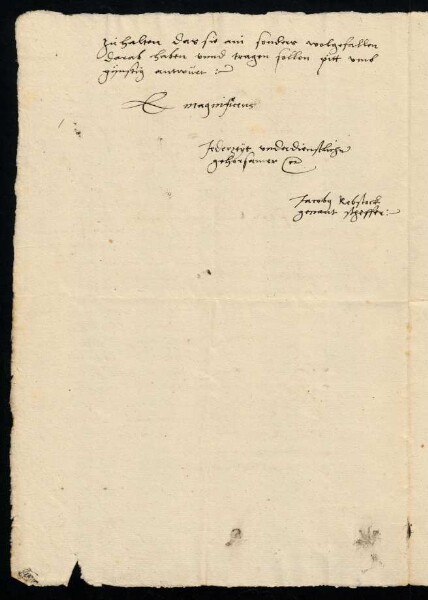 zu halten das sie ain sonders wolgefallen
darab haben vnnd tragen sollen pitt vmb
günstig antwurt :
E magnificentz
Jederzeyt vnderdienstlicher
gehorsamer
Jacobus Rebstock
genant Scheffer: